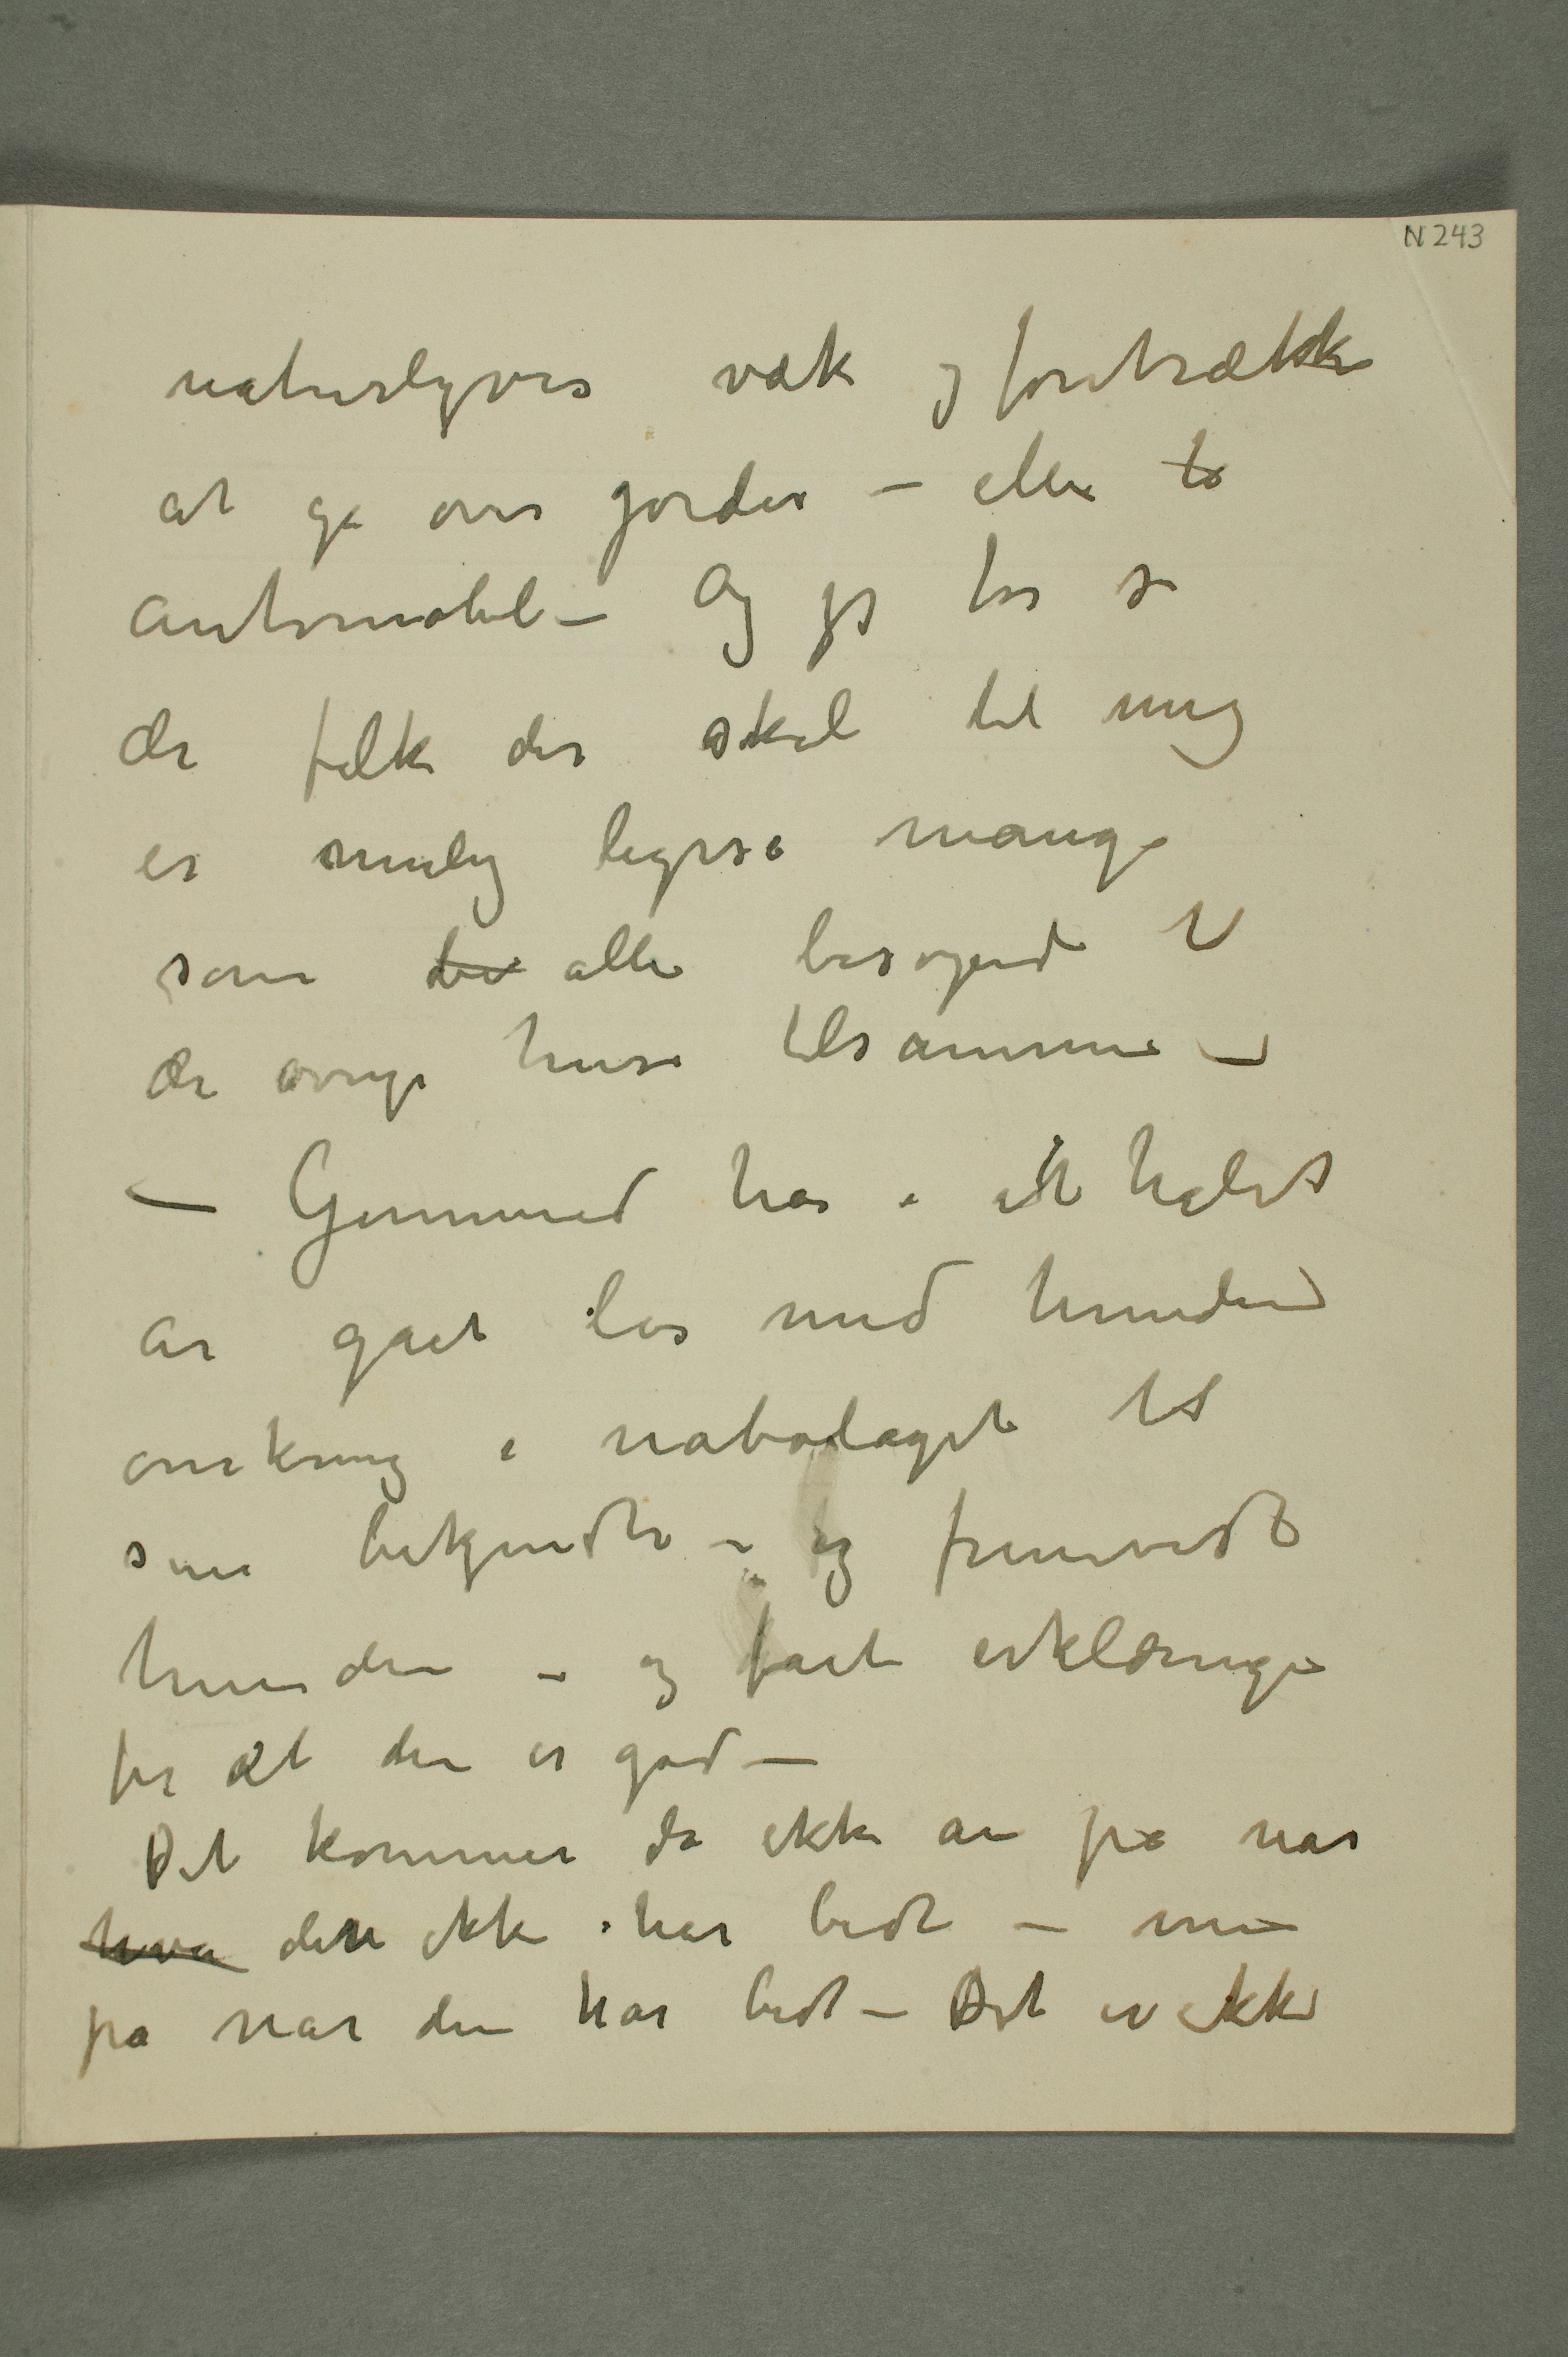 N 243
naturligvis væk og foretrækker
at gå over jorder – eller ta
automobil – Og jeg tør si
de folk der skal til mig
er mulig ligeså mange
som de alle besøgende til
de øvrige huse tilsammen –
– Gjermund har i et halvt
år gået løs med hunden
omkring i nabolaget til
sine bekjendte – og fremvist
hunden – og fået erklæringer
for at den er god –
Det kommer da ikke an på når
hva den ikke har bidt – men
på når den har bidt – Det er ikke